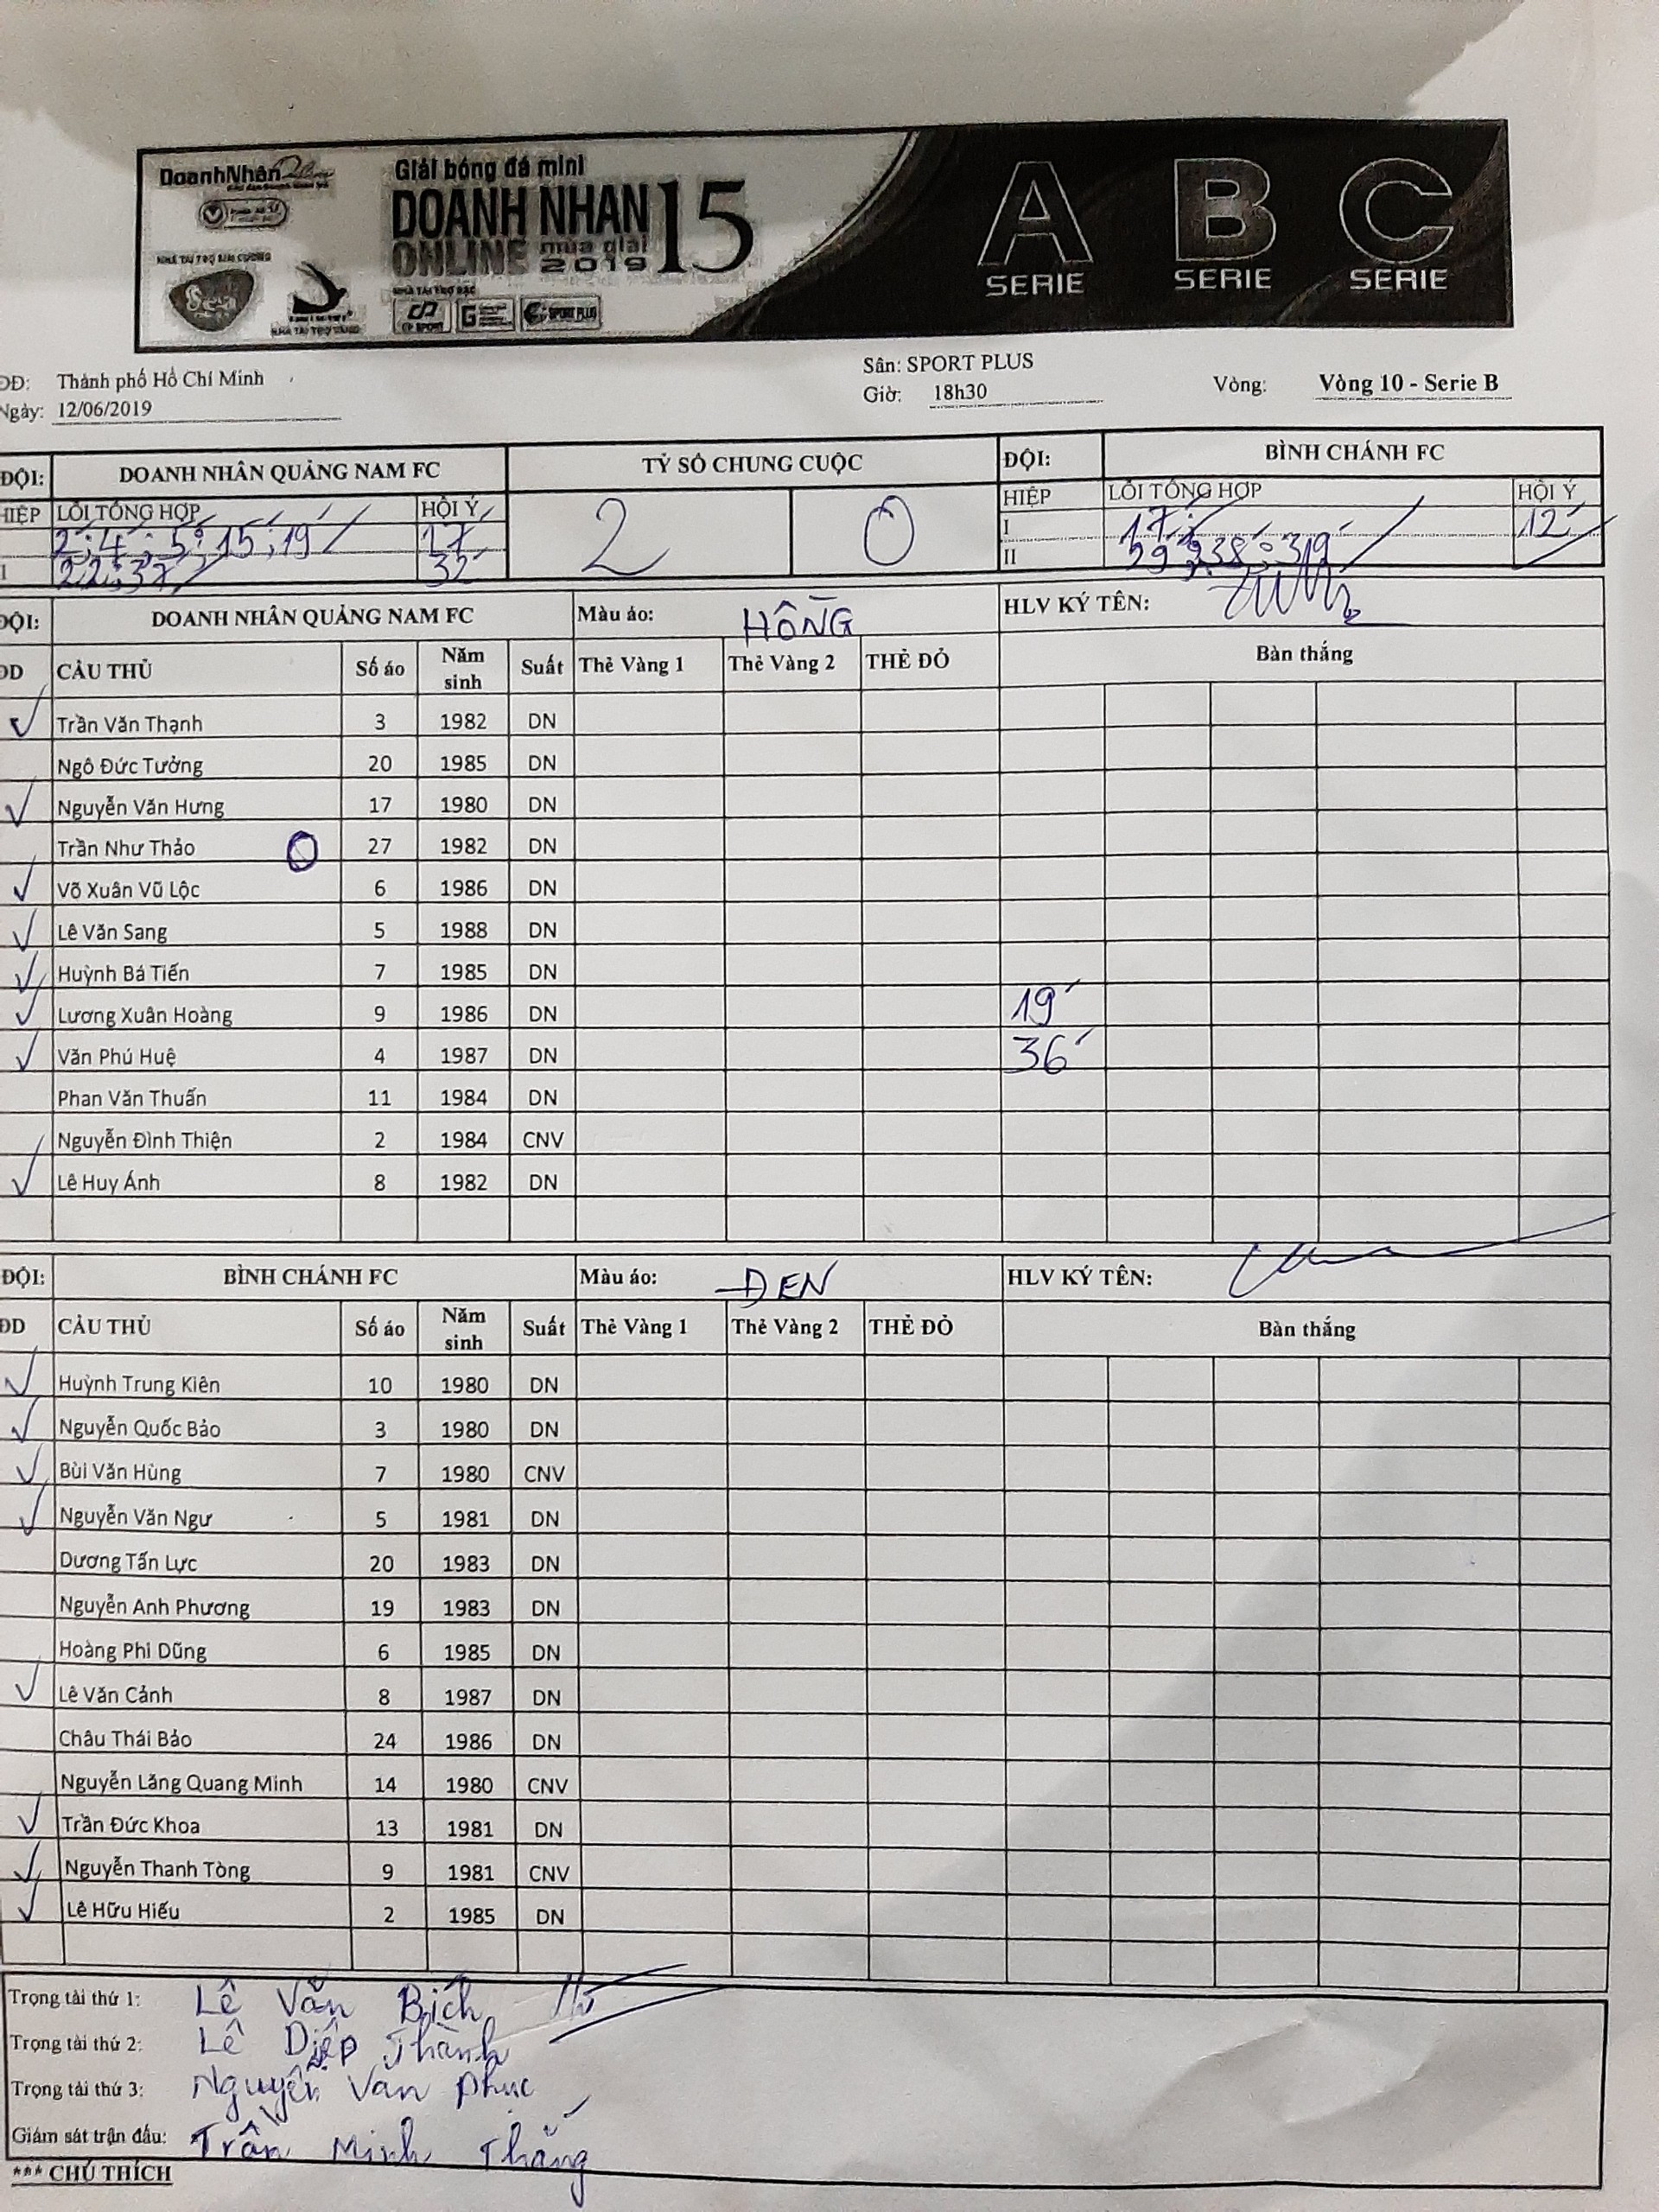 DoanhNhân
Giải bóng đá mini
DOANH NHAN 15
ONLINE mùa giải
2019
NHÀ TÀI TRỢ KIM CƯƠNG
NHÀ TÀI TRỢ VÀNG
NHÀ TÀI TRỢ BẠC
CP SPORT G SPORT PLUS
A B C
SERIE SERIE SERIE
DĐ: Thành phố Hồ Chí Minh Sân: SPORT PLUS
Ngày: 12/06/2019 Giờ: 18h30 Vòng: Vòng 10 - Serie B
ĐỘI: DOANH NHÂN QUẢNG NAM FC TỶ SỐ CHUNG CUỘC ĐỘI: BÌNH CHÁNH FC
HIỆP LỖI TỔNG HỢP HỘI Ý 2 0 HIỆP LỖI TỔNG HỢP HỘI Ý
2'; 4'; 5'; 15'; 19' 17' I 17' 12'
I 22'; 37' 32' II 38' 39'
ĐỘI: DOANH NHÂN QUẢNG NAM FC Màu áo: HỒNG HLV KÝ TÊN:
DD CẦU THỦ Số áo Năm sinh Suất Thẻ Vàng 1 Thẻ Vàng 2 THẺ ĐỎ Bàn thắng
✓ Trần Văn Thạnh 3 1982 DN
Ngô Đức Tưởng 20 1985 DN
✓ Nguyễn Văn Hưng 17 1980 DN
Trần Như Thảo O 27 1982 DN
✓ Võ Xuân Vũ Lộc 6 1986 DN
✓ Lê Văn Sang 5 1988 DN
✓ Huỳnh Bá Tiến 7 1985 DN
✓ Lương Xuân Hoàng 9 1986 DN 19'
✓ Văn Phú Huệ 4 1987 DN 36'
Phan Văn Thuấn 11 1984 DN
Nguyễn Đình Thiện 2 1984 CNV
✓ Lê Huy Ánh 8 1982 DN
ĐỘI: BÌNH CHÁNH FC Màu áo: ĐEN HLV KÝ TÊN:
DD CẦU THỦ Số áo Năm sinh Suất Thẻ Vàng 1 Thẻ Vàng 2 THẺ ĐỎ Bàn thắng
✓ Huỳnh Trung Kiên 10 1980 DN
✓ Nguyễn Quốc Bảo 3 1980 DN
✓ Bùi Văn Hùng 7 1980 CNV
✓ Nguyễn Văn Ngư 5 1981 DN
Dương Tấn Lực 20 1983 DN
Nguyễn Anh Phương 19 1983 DN
Hoàng Phi Dũng 6 1985 DN
✓ Lê Văn Cảnh 8 1987 DN
Châu Thái Bảo 24 1986 DN
Nguyễn Lăng Quang Minh 14 1980 CNV
✓ Trần Đức Khoa 13 1981 DN
✓ Nguyễn Thanh Tòng 9 1981 CNV
✓ Lê Hữu Hiếu 2 1985 DN
Trọng tài thứ 1: Lê Văn Bích
Trọng tài thứ 2: Lê Diệp Thành
Trọng tài thứ 3: Nguyễn Văn Phúc
Giám sát trận đấu: Trần Minh Thắng
*** CHÚ THÍCH